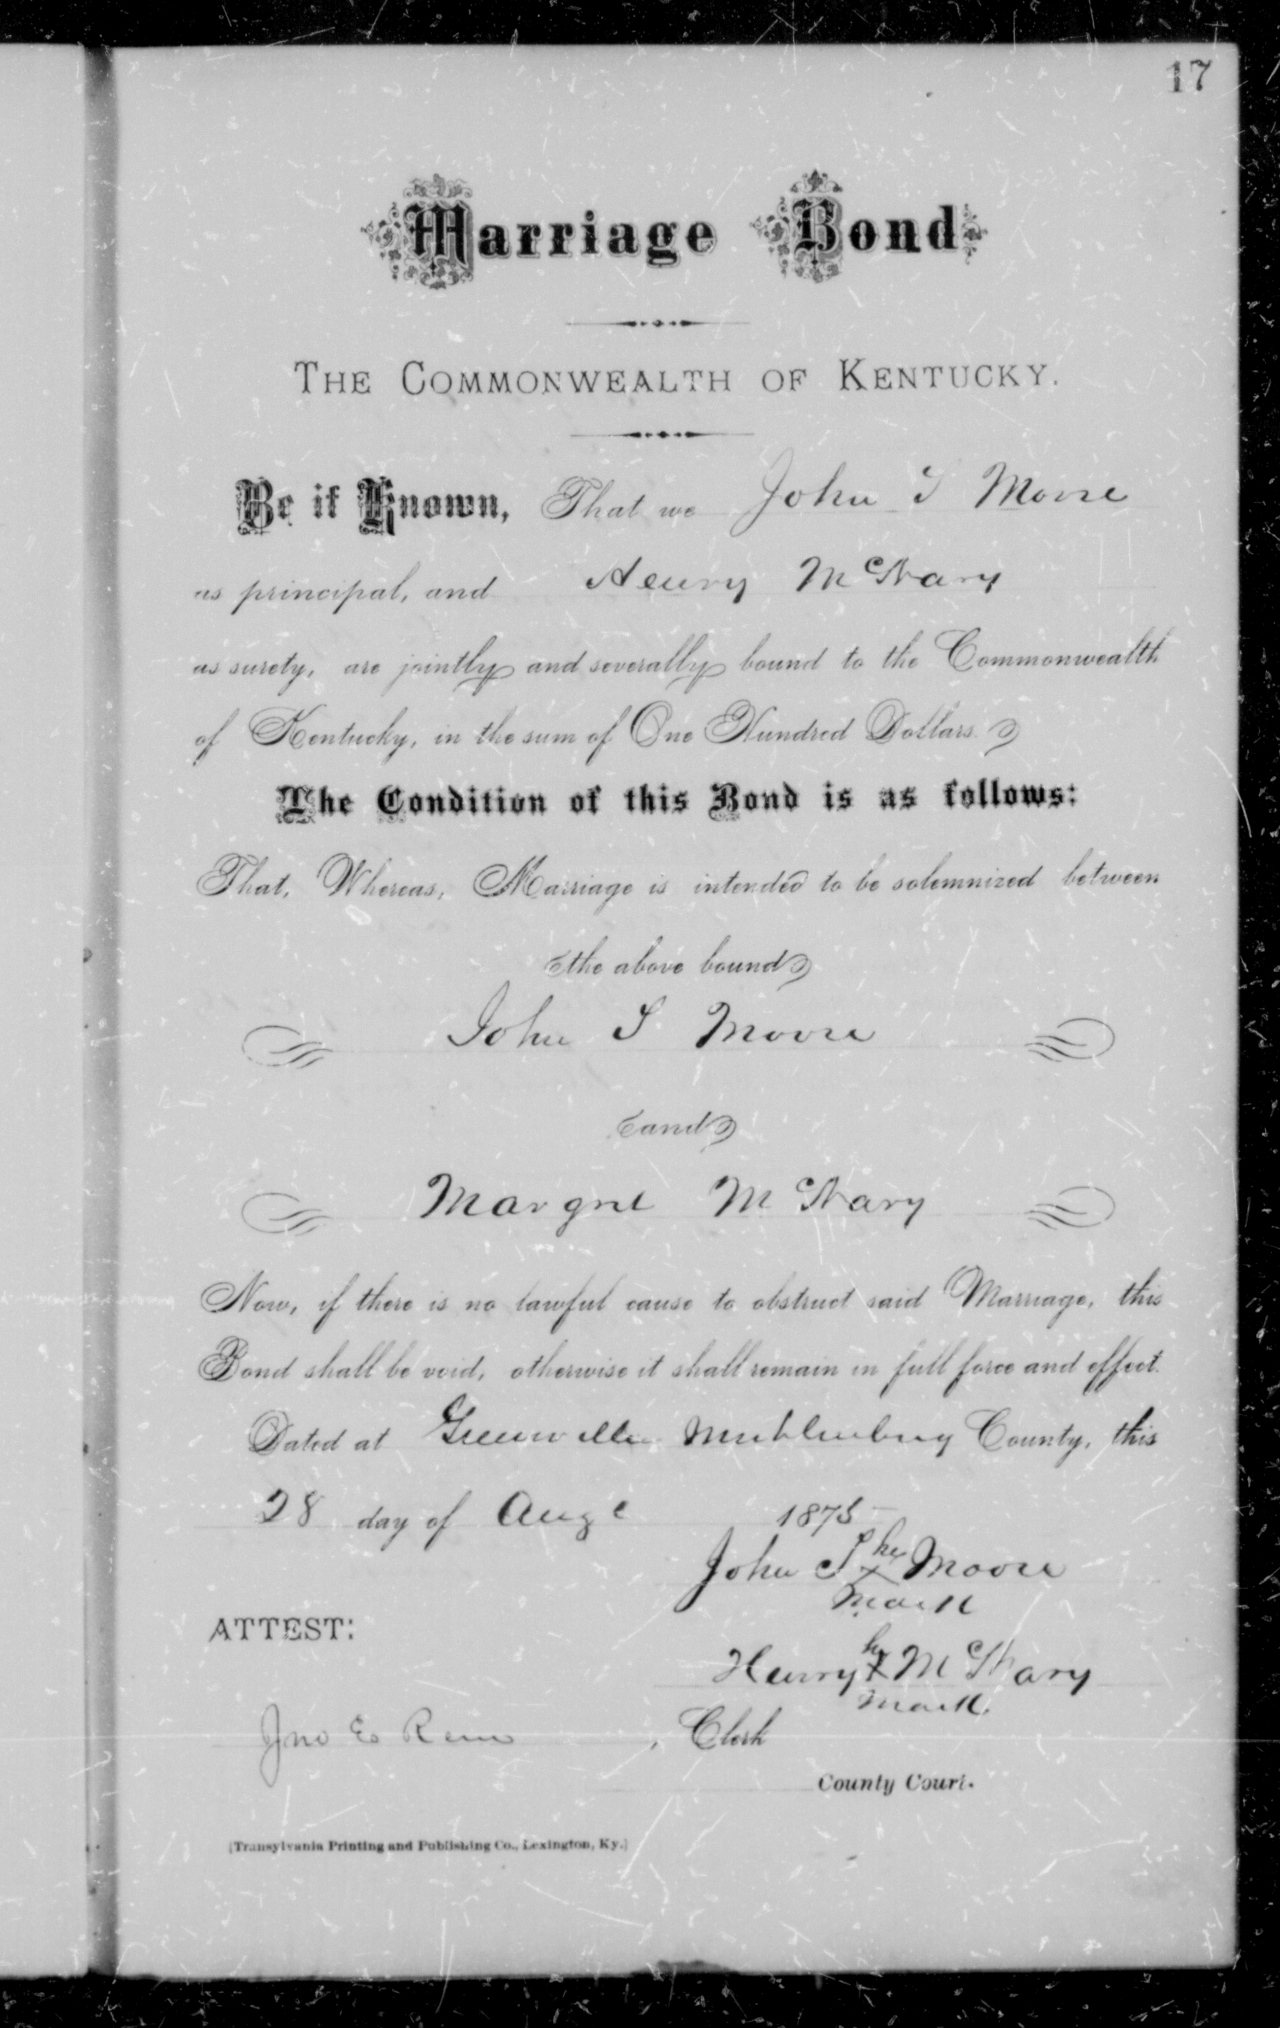 17
Marriage Bond
THE COMMONWEALTH OF KENTUCKY.
Be it Known, That we John S Moore
as principal, and Henry McNary
as surety, are jointly and severally bound to the Commonwealth
of Kentucky, in the sum of One Hundred Dollars.
The Condition of this Bond is as follows:
That, Whereas, Marriage is intended to be solemnized between
the above bound
John S Moore
and
Margret McNary
Now, if there is no lawful cause to obstruct said Marriage, this
Bond shall be void, otherwise it shall remain in full force and effect.
Dated at Greenville Muhlenburg County, this
28 day of Augt 1875
John S his x Moore
mark
ATTEST:
Henry his x McNary
mark
Jno E Reno, Clerk
County Court.
[Transylvania Printing and Publishing Co., Lexington, Ky.]